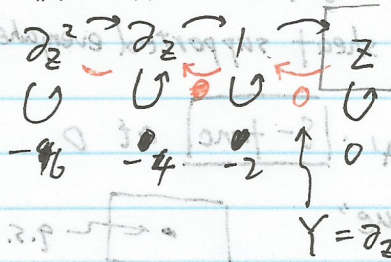 ∂z² → ∂z → 1 → z
0 0
-6 -4 -2 0
Y = ∂z